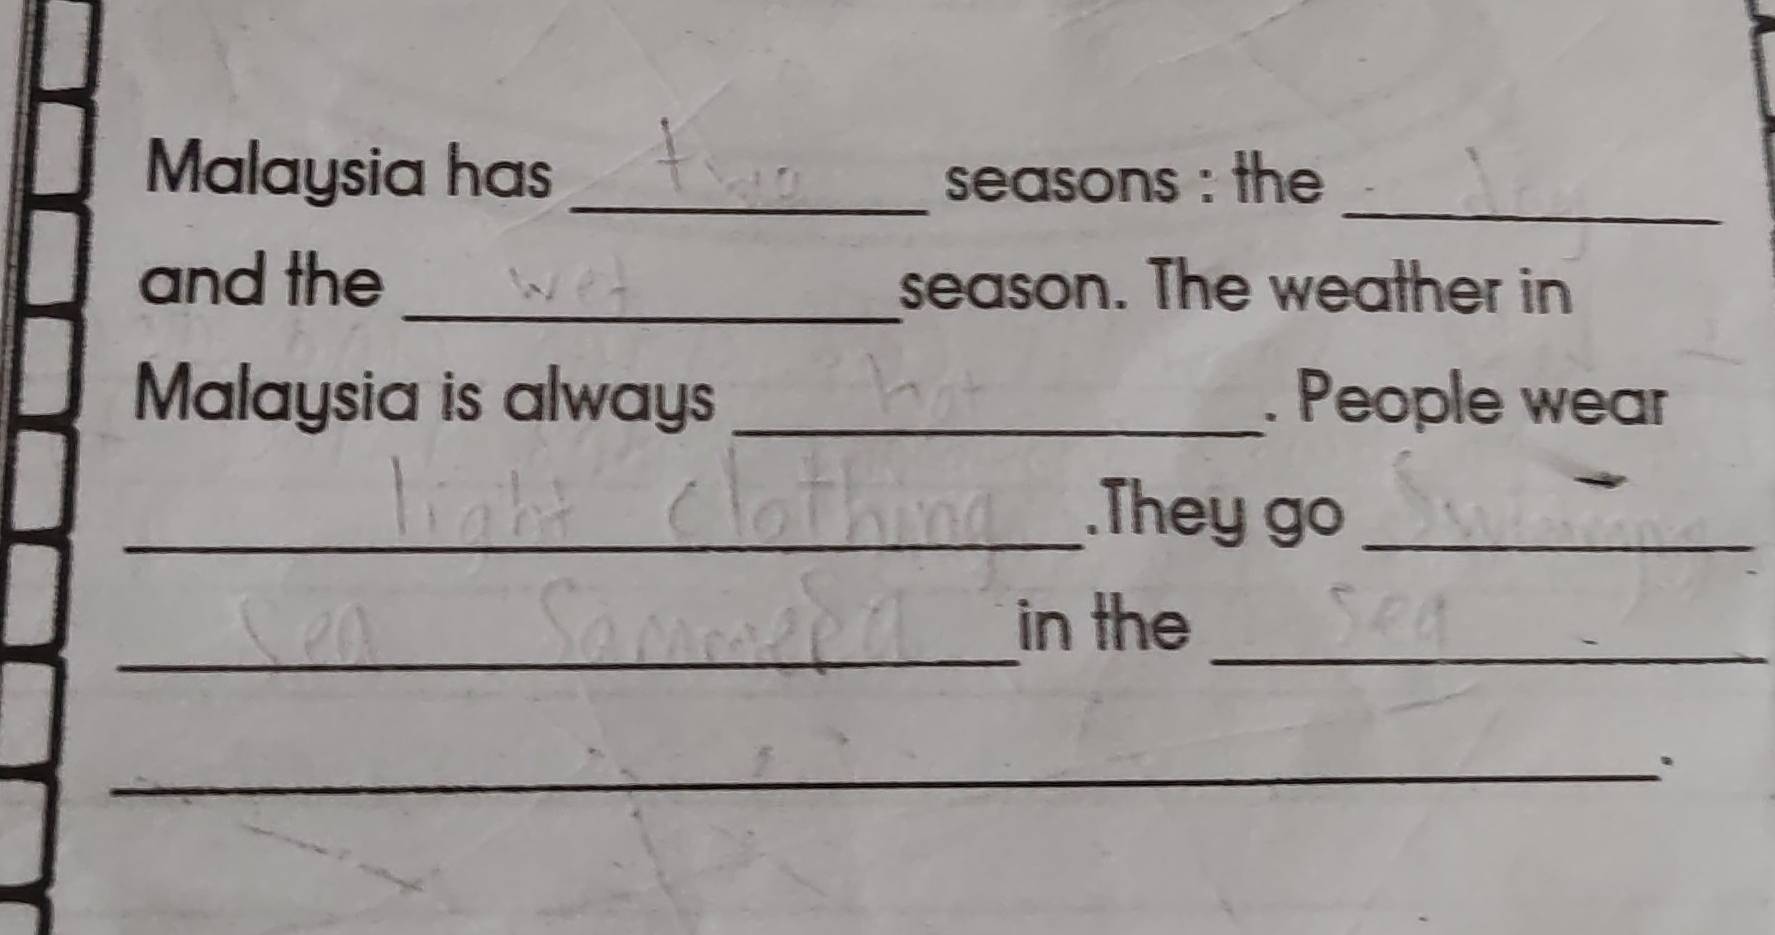 Malaysia has two seasons : the dry
and the wet season. The weather in
Malaysia is always hot. People wear
light clothing. They go
sea in the sea
.